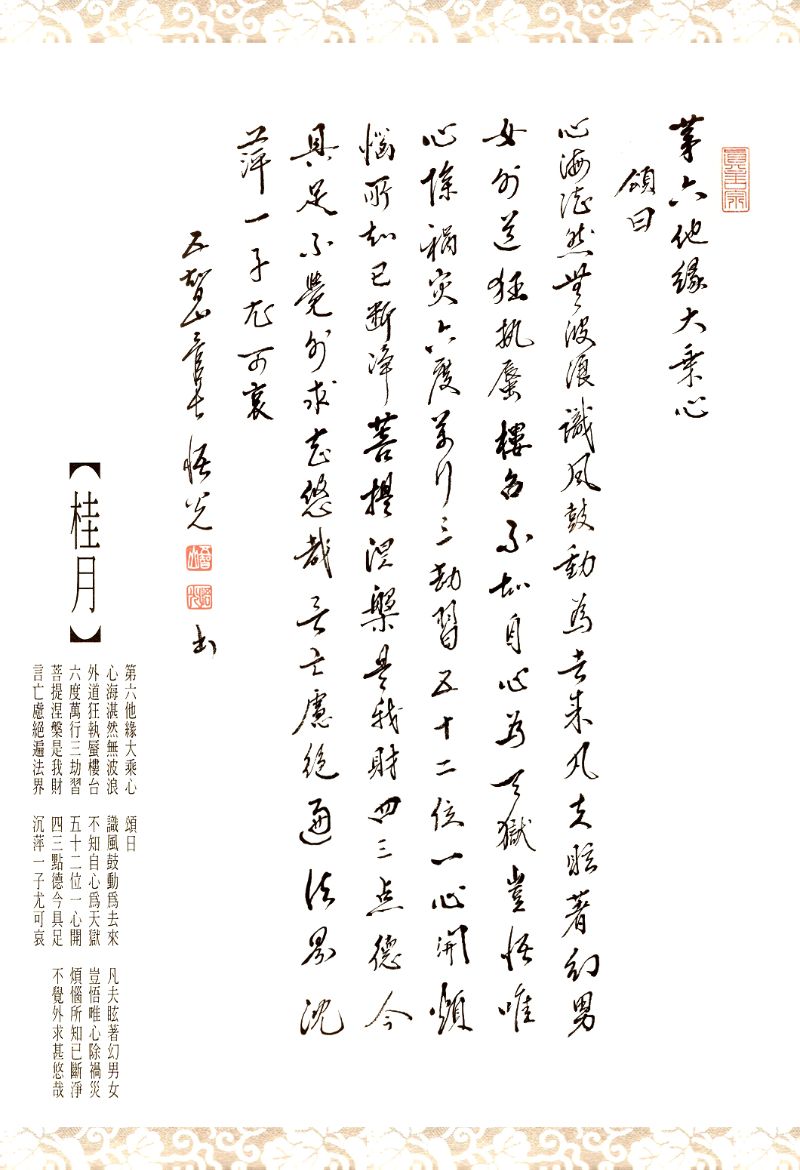 第六他緣大乘心
頌曰
心海湛然無波浪識風鼓動為去來凡夫眩著幻男
女外道狂執蜃樓台不知自心為天獄豈悟唯
心除禍災六度萬行三劫習五十二位一心開煩
惱所知已斷淨菩提涅槃是我財四三点德今
具足不覺外求甚悠哉言亡慮絕遍法界沈
萍一子尤可哀
五智山管長悟光 書
【桂月】
第六他緣大乘心 頌曰
心海湛然無波浪 識風鼓動爲去來 凡夫眩著幻男女
外道狂執蜃樓台 不知自心爲天獄 豈悟唯心除禍災
六度萬行三劫習 五十二位一心開 煩惱所知已斷淨
菩提涅槃是我財 四三點德今具足 不覺外求甚悠哉
言亡慮絕遍法界 沉萍一子尤可哀